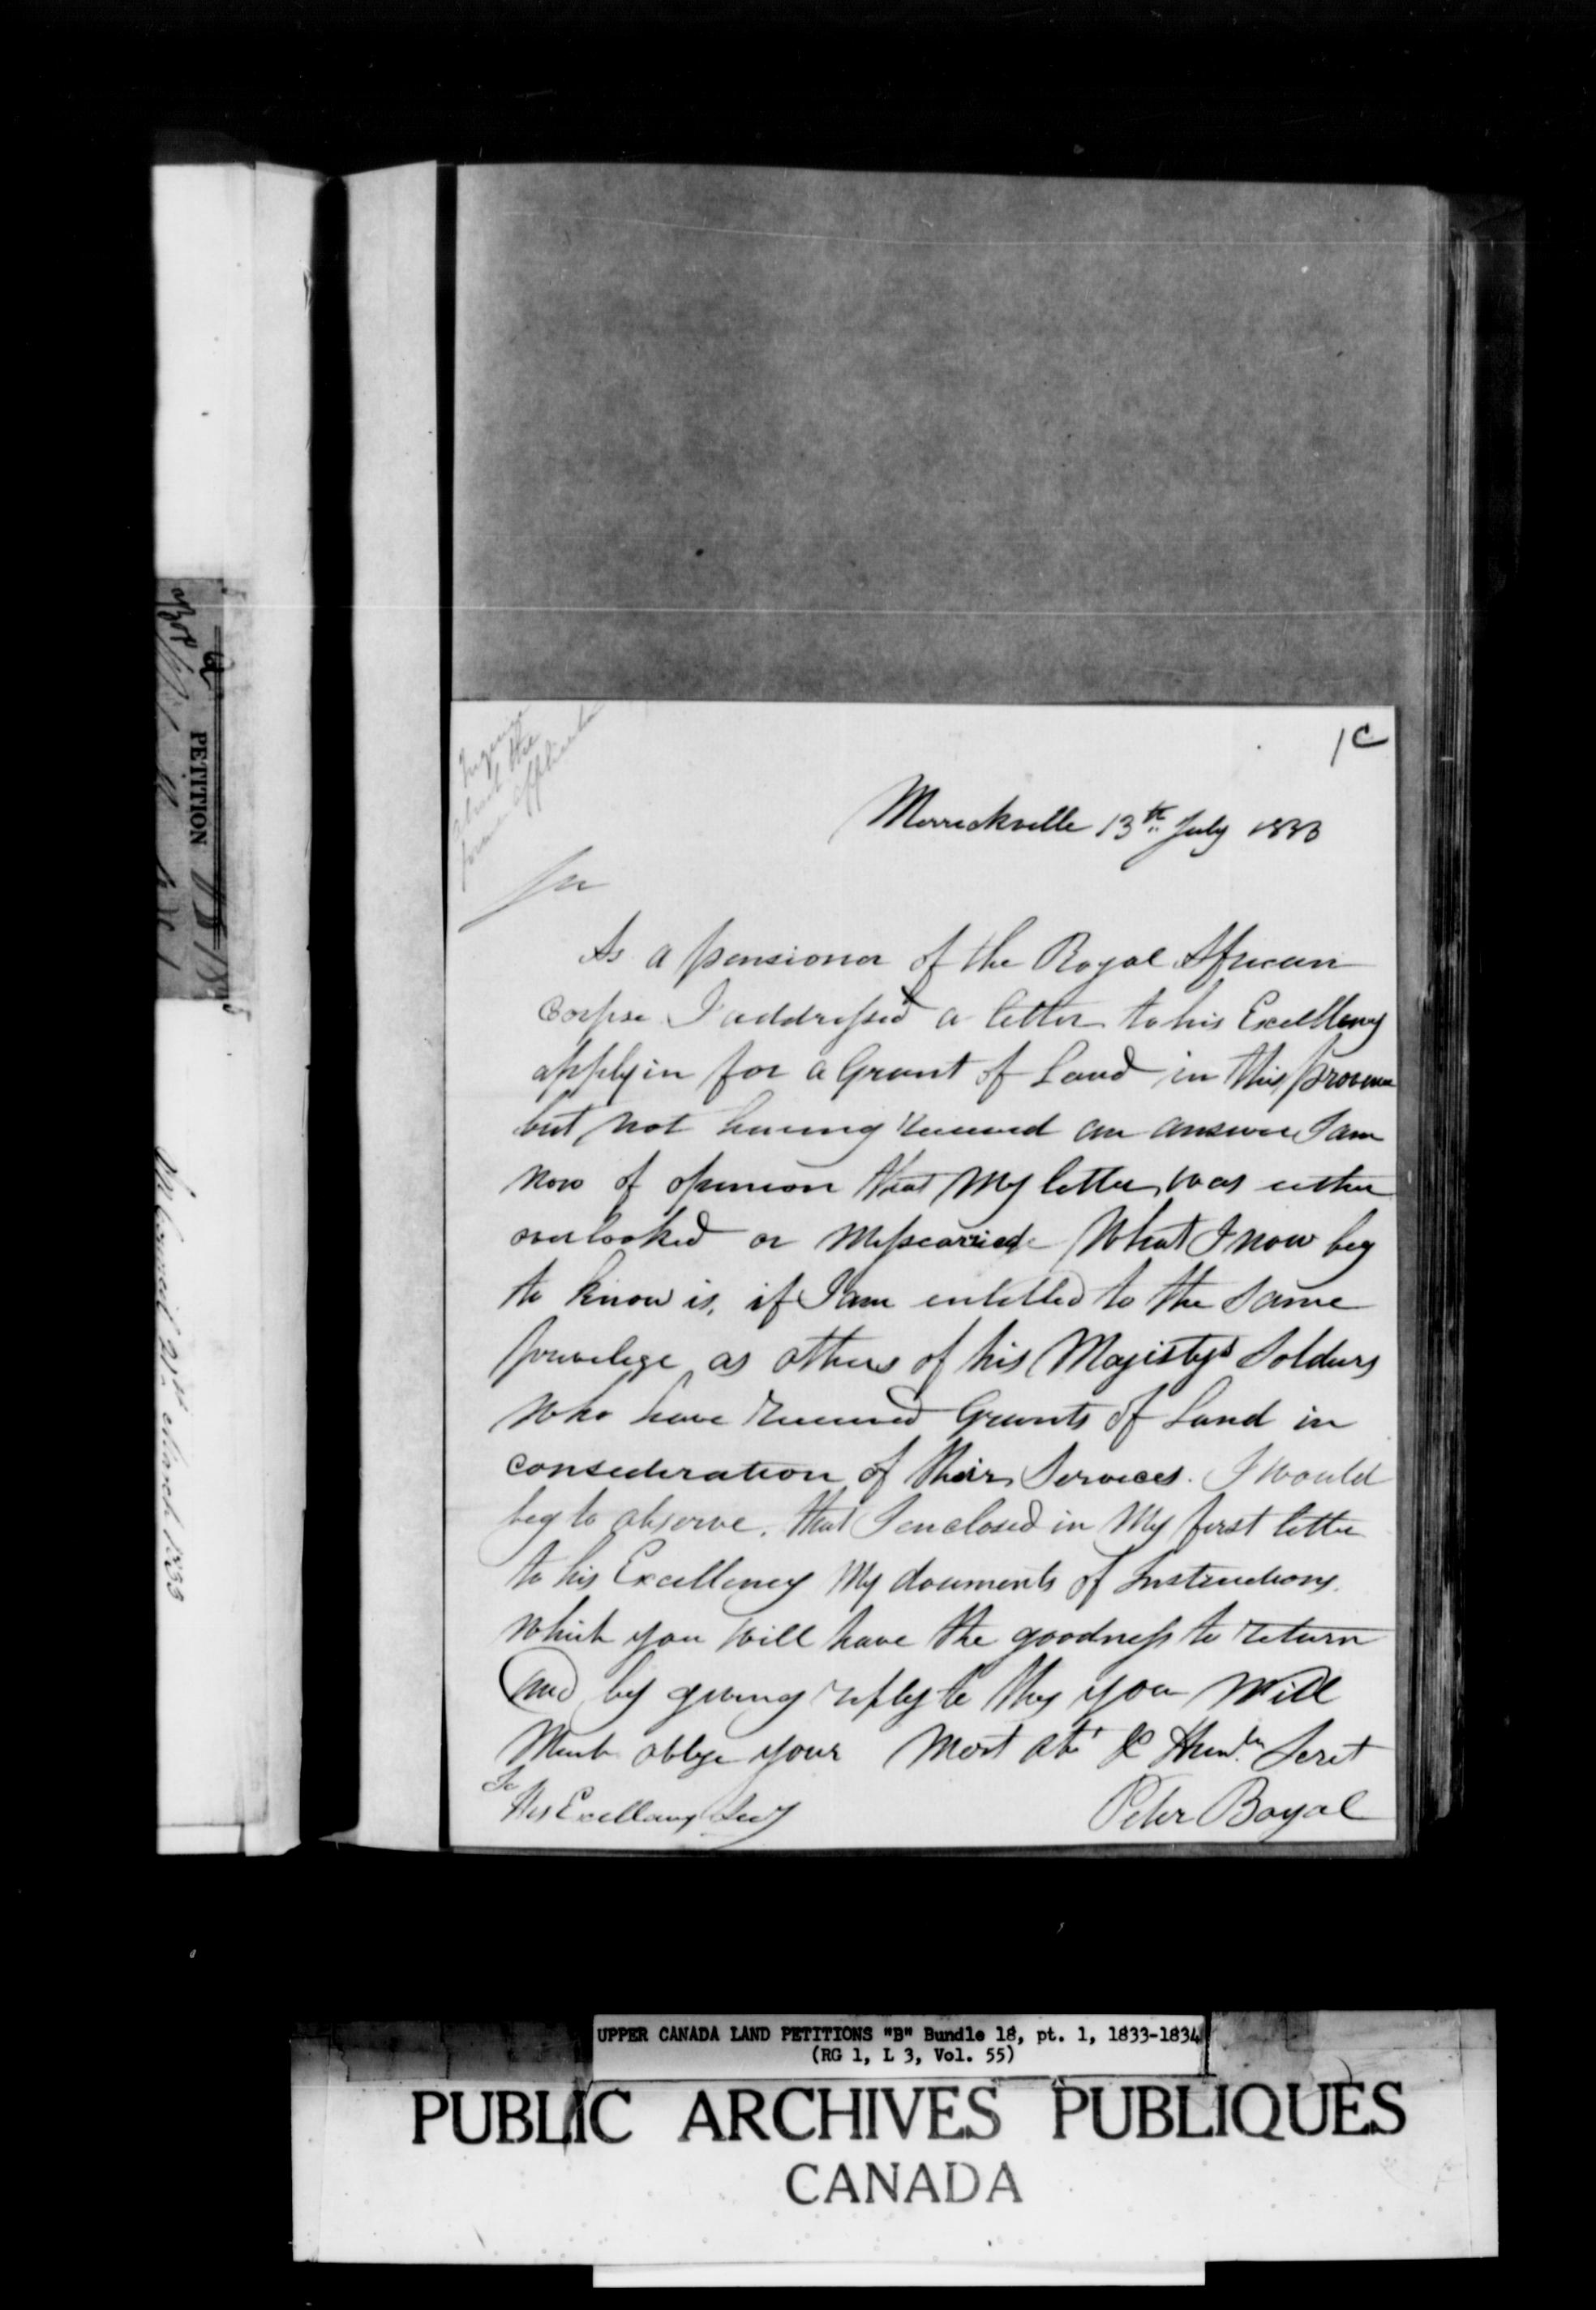 1C
Inquire
about the
former application
Merrickville 13th July 1833
Sir
As a pensioner of the Royal African
Corpse I addressed a letter to his Excellency
applyin for a Grant of Land in this province
but not having received an answer I am
now of opinion that My letter was either
overlooked or Misscarried What I now beg
to know is, if I am entitled to the Same
privelege as others of his Majistys Soldiers
who have received Grants of Land in
consideration of their Services. I would
beg to observe. that I enclosed in My first letter
to his Excellency My documents of Instructions.
which you will have the goodness to return
and by giving reply to this you Will
Much oblige your Most Obt & Humble Servt
Peter Boyal
To
His Excellency Secy
PETITION
21st March 1833
UPPER CANADA LAND PETITIONS "B" Bundle 18, pt. 1, 1833-1834
(RG 1, L 3, Vol. 55)
PUBLIC ARCHIVES PUBLIQUES
CANADA